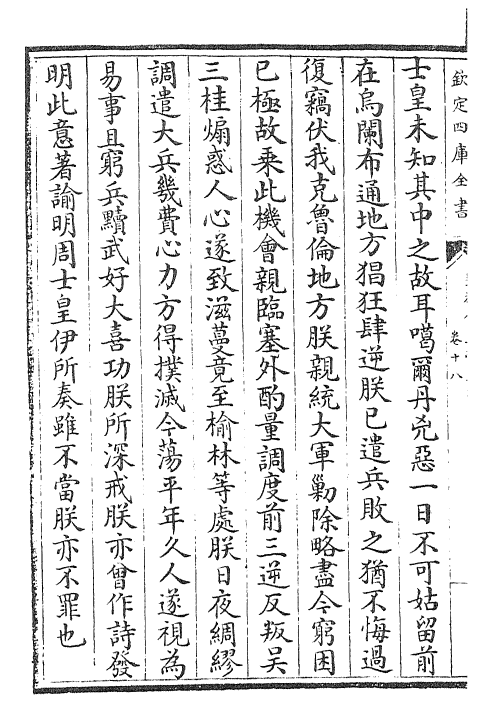 欽定四庫全書
卷十八
士皇未知其中之故耳噶爾丹兇惡一日不可姑留前
在烏闌布通地方猖狂肆逆朕已遣兵敗之猶不悔過
復竊伏我克魯倫地方朕親統大軍勦除略盡今窮困
已極故乘此機會親臨塞外酌量調度前三逆反叛吳
三桂煽惑人心遂致滋蔓竟至榆林等處朕日夜綢繆
調遣大兵幾費心力方得撲滅今蕩平年久人遂視為
易事且窮兵黷武好大喜功朕所深戒朕亦曾作詩發
明此意著諭明周士皇伊所奏雖不當朕亦不罪也